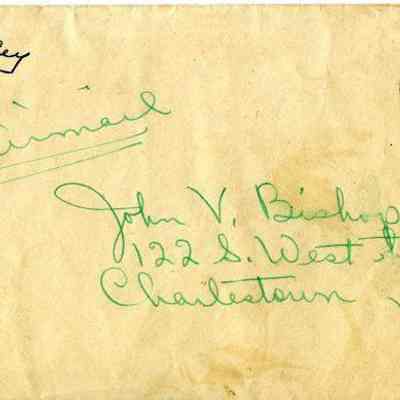 Airmail
John V. Bishop
122 S. West St
Charlestown